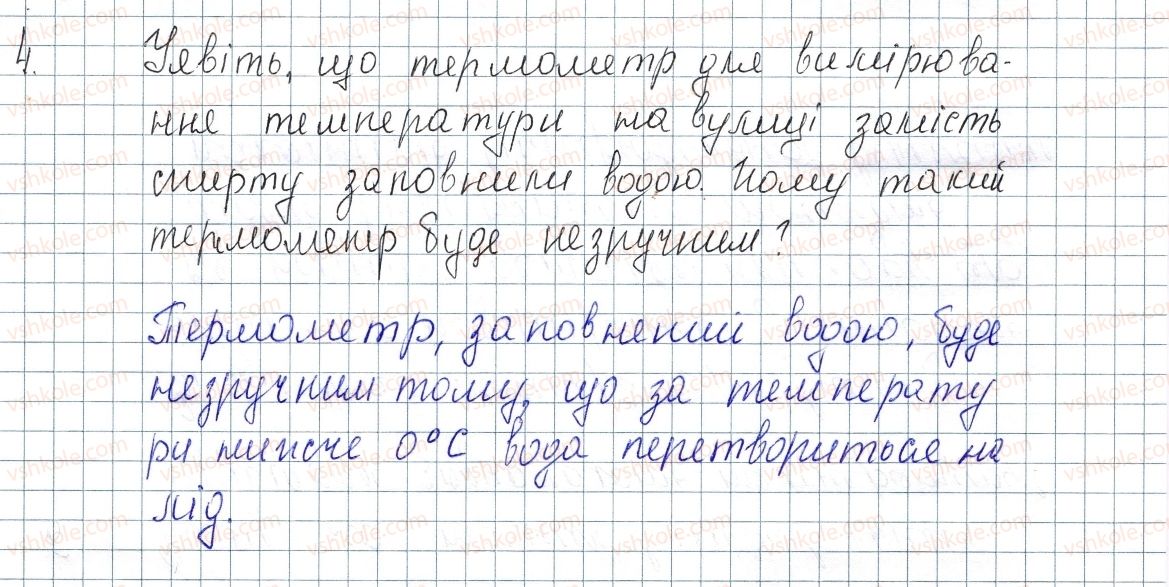 4. Уявіть, що термометр для вимірюва-
ння температури на вулиці замість
спирту заповнили водою. Чому такий
термометр буде незручним?
Термометр, заповнений водою, буде
незручним тому, що за температу
ри нижче 0°C вода перетвориться на
лід.